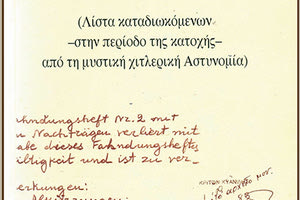 (Λίστα καταδιωκόμενων
–στην περίοδο της κατοχής–
από τη μυστική χιτλερική Αστυνομία)
ahndungsheft Nr. 2 mit
n Nachträgen verliert mit
abe dieses Fahndungsheftes
ültigkeit und ist zu ver-
erkungen: